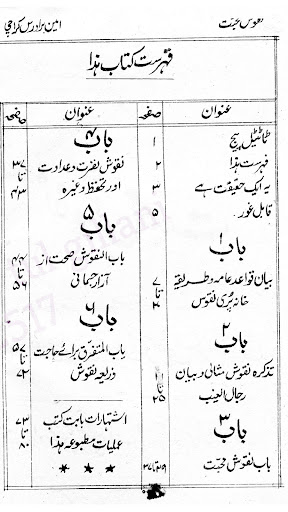 نقوس محبت
امین برادرس کراچی
فہرست کتاب ہذا
عنوان صفحہ
ٹائٹیل پیج ۱
فہرست ہذا ۲
یہ ایک حقیقت ہے ۳
قابل غور ۵
باب ۱
بیان قواعد عامہ و طریقہ ۷
تا
خانہ پُری نقوس
باب ۲
تذکرہ نقوش مثالی و بیان
تا
رجال الغیب ۲۵
باب ۳
باب نقوش محبت
عنوان صفحہ
باب ۴
نقوش نفرت و عداوت ۳۷
تا
اور تحفظ وغیرہ ۴۳
باب ۵
باب النقوش صحت از ۴۴
تا
آزار جسمانی ۵۶
باب ۶
باب المتفرق برائے حاجت ۵۷
تا
ذریعہ نقوش ۷۲
اشتہارات بابت کتب ۷۳
تا
عملیات مطبوعہ ہذا ۸۰
* * *